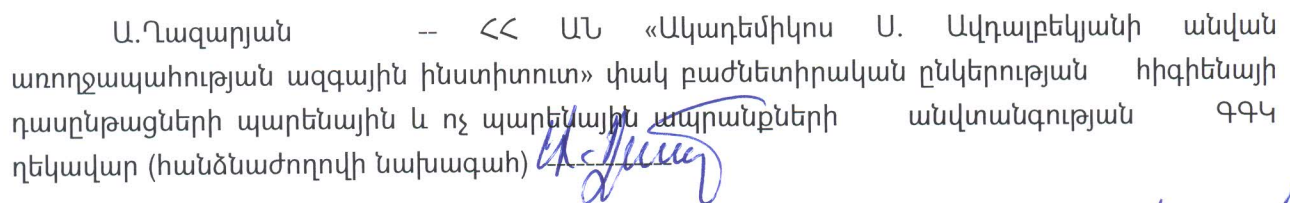 Ա.Ղազարյան -- ՀՀ ԱՆ «Ակադեմիկոս Ս. Ավդալբեկյանի անվան
առողջապահության ազգային ինստիտուտ» փակ բաժնետիրական ընկերության հիգիենայի
դասընթացների պարենային և ոչ պարենային ապրանքների անվտանգության ԳԳԿ
ղեկավար (հանձնաժողովի նախագահ)